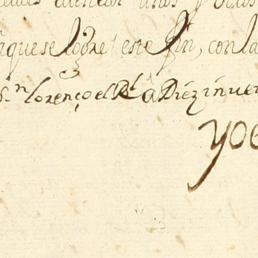 unos y otros
quese logre este fin, con la
Sn. Lorenço el Rl. a Diez i nuev
YO E